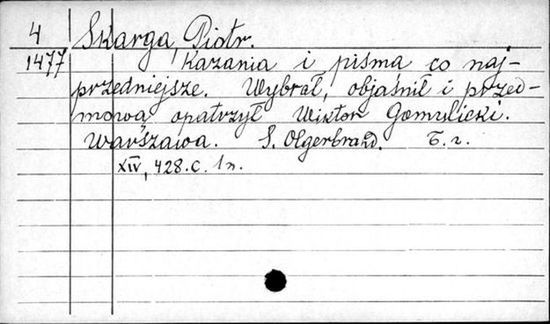 4 Skarga, Piotr.
1477 Kazania i pisma co naj-
przedniejsze. Wybrał, objaśnił i przed-
mową opatrzył Wiktor Gomulicki.
Warszawa. S. Olgerbrand. Б.г.
XIV, 428.с. 1н.